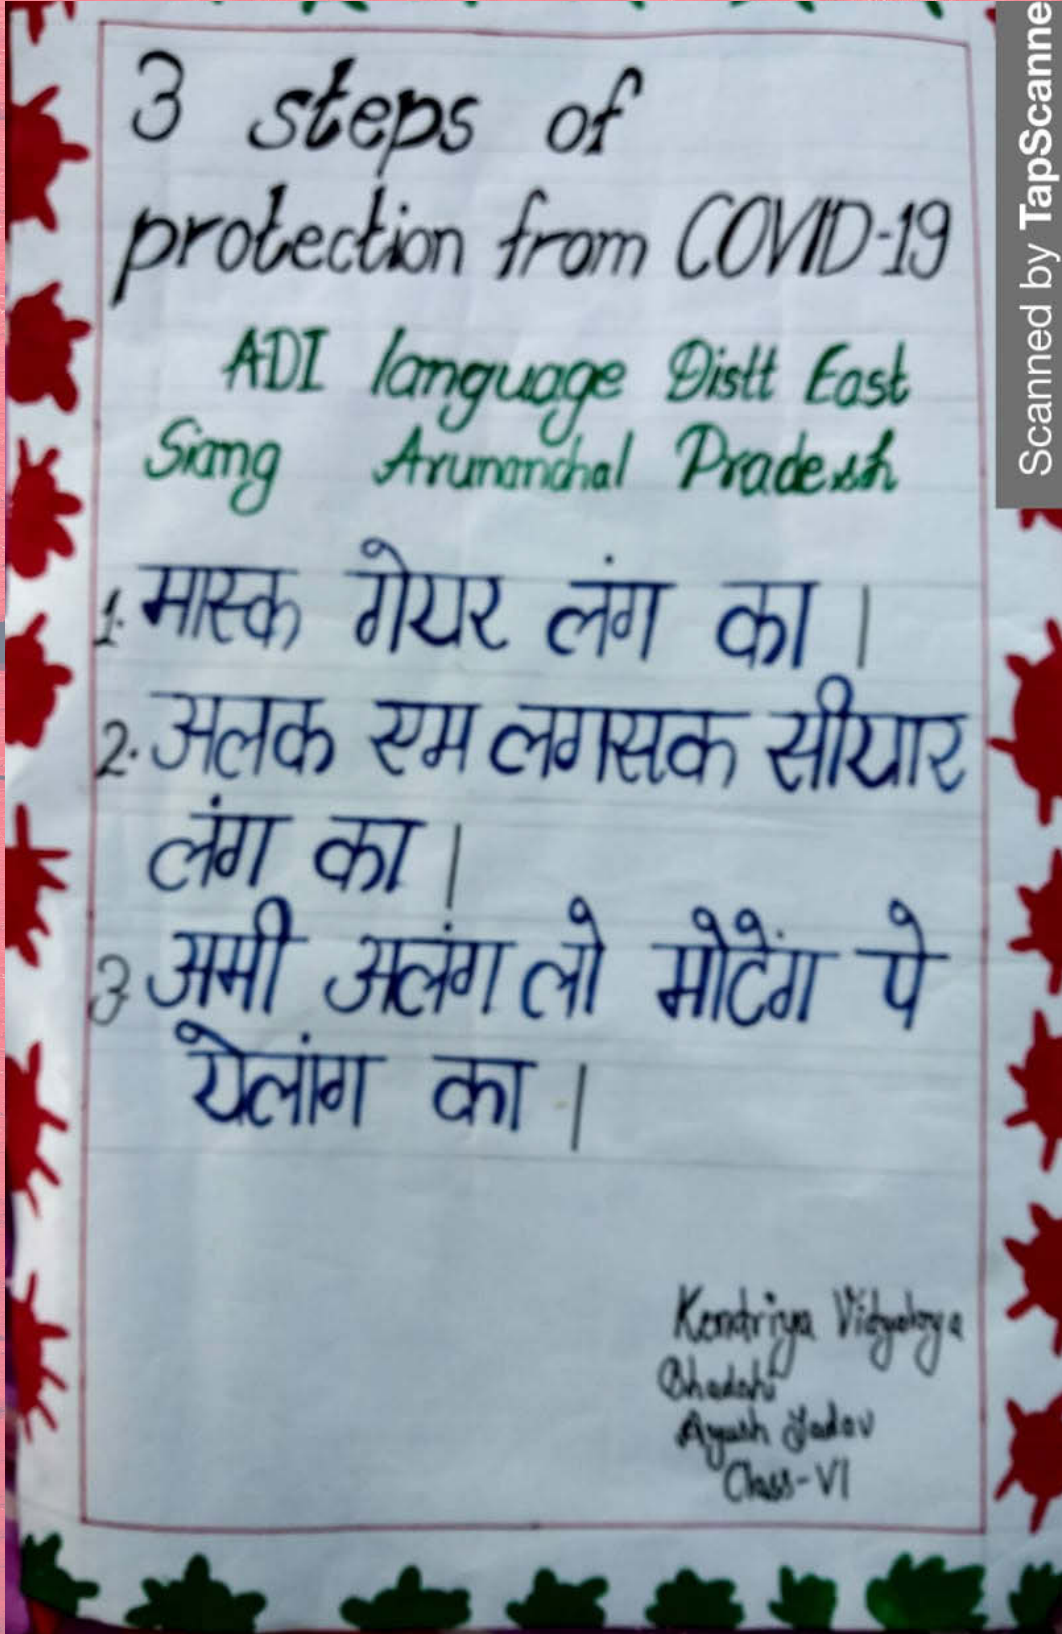 3 steps of
protection from COVID-19
ADI language Distt East
Siang Arunanchal Pradesh
1. मास्क गेयर लंग का ।
2. अलक एम लगसक सीयार
लंग का ।
3 अमी अलंग लो मोटेंग पे
येलांग का ।
Kendriya Vidyalaya
Bhadohi
Ayush Yadav
Class-VI
Scanned by TapScanne